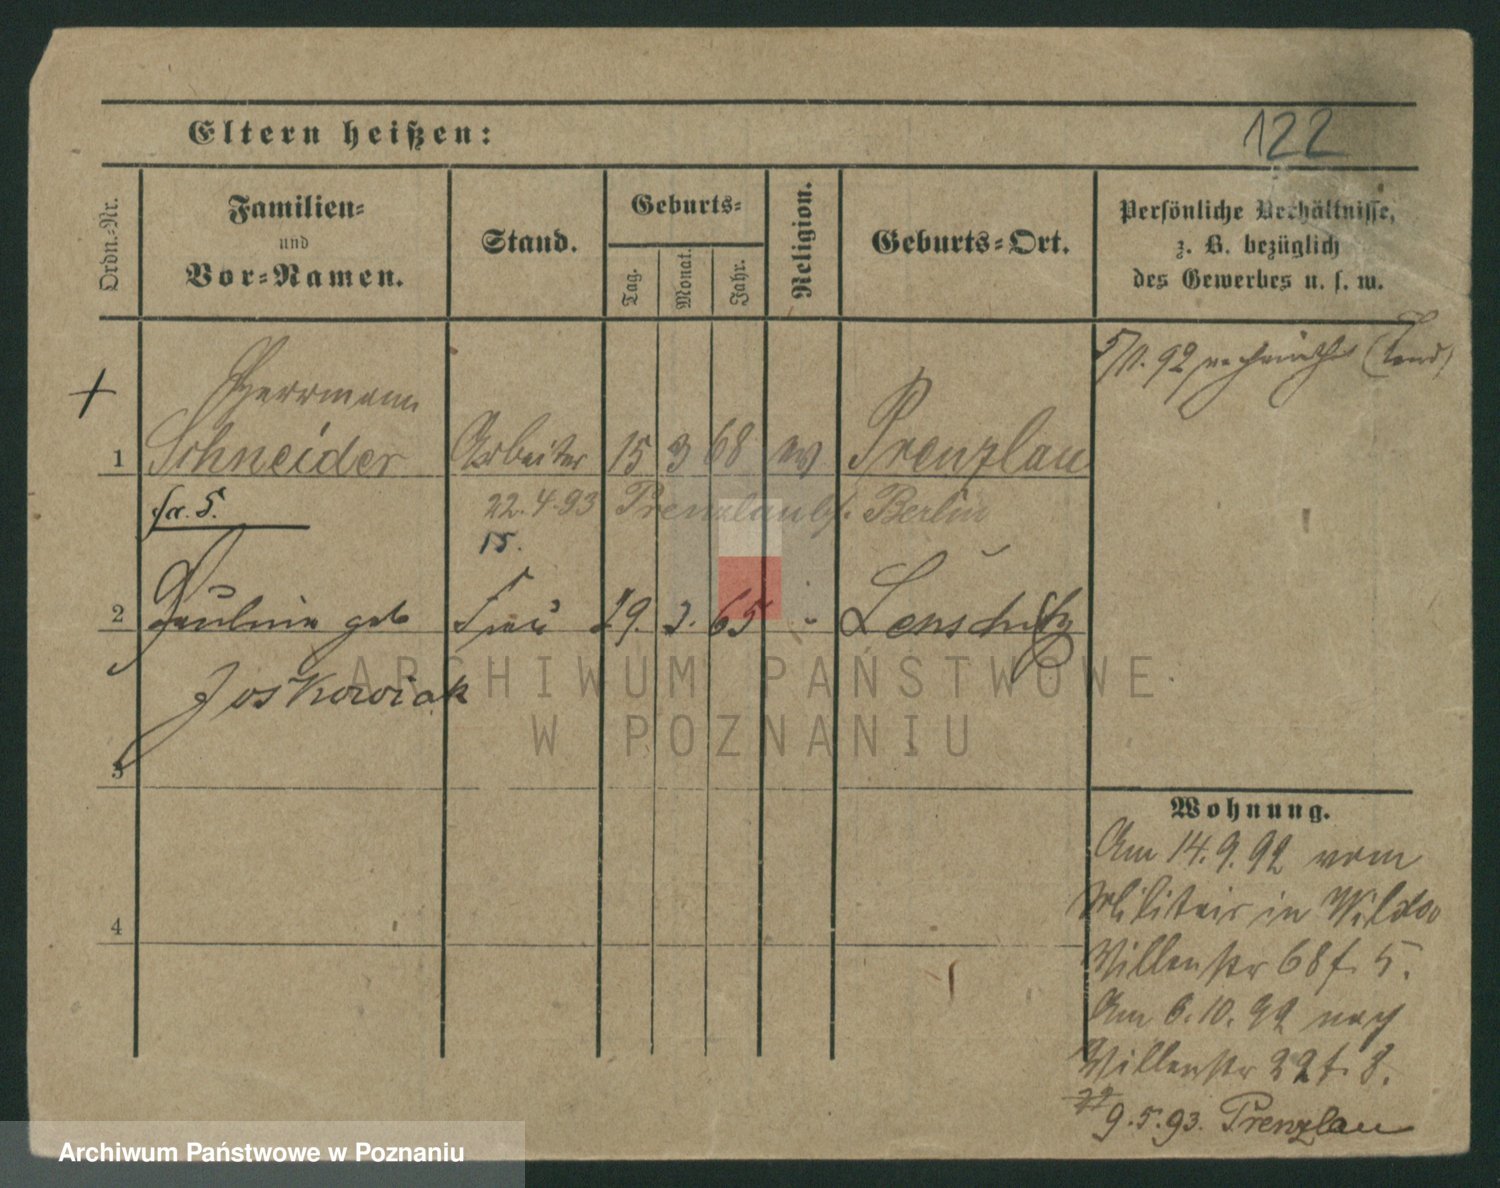 Eltern heißen:
122
Ordn.-Nr.
Familien-
und
Vor-Namen.
Stand.
Geburts-
Tag.
Monat.
Jahr.
Religion.
Geburts-Ort.
Persönliche Verhältnisse,
z. B. bezüglich
des Gewerbes u. s. w.
5/11.92
Herrmann
1 Schneider Arbeiter 15 3 68 ev Prenzlau
22.4.93 Prenzlau Berlin
15.
2 Pauline geb Frau 29. 3. 65 - Lenschütz
Joskowiak
3
4
Wohnung.
Am 14.9.92 vom
Militair in Wilda
Villenstr 68 f. 5.
Am 6.10.92 nach
Villenstr 22 f. 8.
9.5.93. Prenzlau
ARCHIWUM PAŃSTWOWE
W POZNANIU
Archiwum Państwowe w Poznaniu